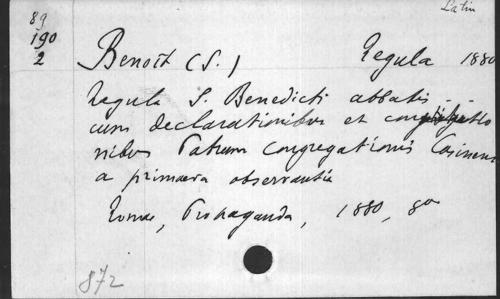 Latin
89
190
2
Benoit (S.) Regula 1880
Regula S. Benedicti abbatis
cum declarationibus et
nibus Patrum Congregationis Casinens
a primaeva observantia
Romae, Propaganda, 1880, 8o
872